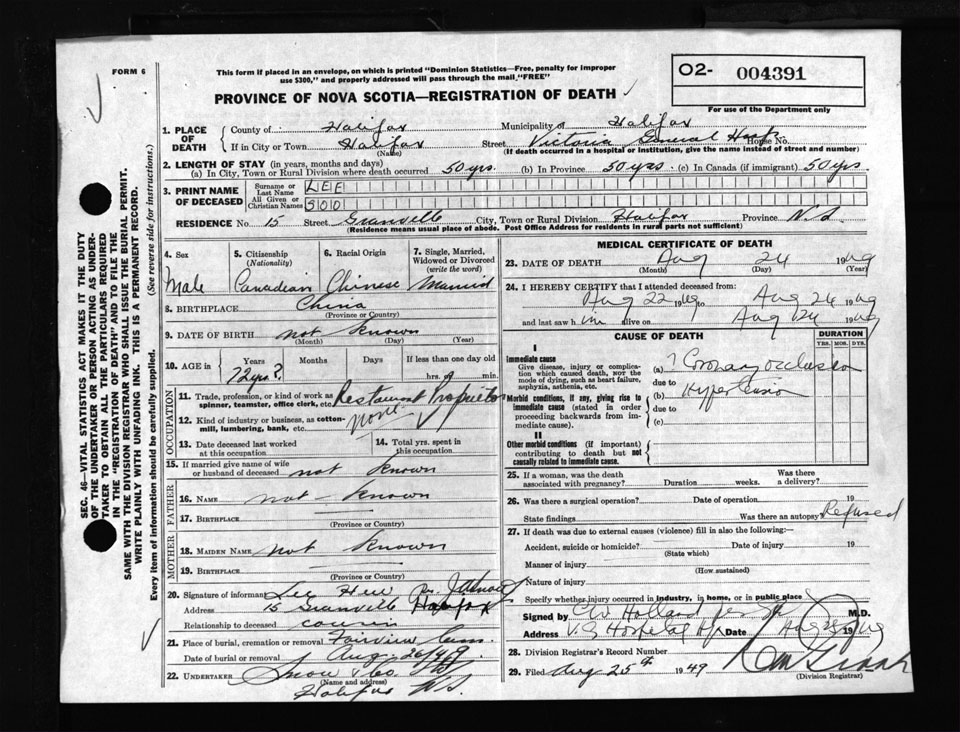 FORM 6
This form if placed in an envelope, on which is printed "Dominion Statistics—Free, penalty for improper
use $300," and properly addressed will pass through the mail "FREE"
O2- 004391
For use of the Department only
PROVINCE OF NOVA SCOTIA—REGISTRATION OF DEATH
1. PLACE OF DEATH
County of Halifax Municipality of Halifax
If in City or Town Halifax Street Victoria General Hosp House No.
(Name) (If death occurred in a hospital or institution, give the name instead of street and number)
2. LENGTH OF STAY (in years, months and days)
(a) In City, Town or Rural Division where death occurred 50 yrs. (b) In Province 50 yrs. (c) In Canada (if immigrant) 50 yrs
3. PRINT NAME OF DECEASED
Surname or Last Name LEE
All Given or Christian Names SOO
RESIDENCE No. 15 Street Granville City, Town or Rural Division Halifax Province N.S.
(Residence means usual place of abode. Post Office Address for residents in rural parts not sufficient)
4. Sex
5. Citizenship (Nationality)
6. Racial Origin
7. Single, Married, Widowed or Divorced (write the word)
Male Canadian Chinese Married
8. BIRTHPLACE China
(Province or Country)
9. DATE OF BIRTH not known
(Month) (Day) (Year)
10. AGE in Years Months Days If less than one day old
72 yrs? hrs. or min.
OCCUPATION
11. Trade, profession, or kind of work as spinner, teamster, office clerk, etc. Restaurant Proprietor
12. Kind of industry or business, as cotton-mill, lumbering, bank, etc. none
13. Date deceased last worked at this occupation
14. Total yrs. spent in this occupation
15. If married give name of wife or husband of deceased not known
FATHER
16. NAME not known
17. BIRTHPLACE
(Province or Country)
MOTHER
18. MAIDEN NAME not known
19. BIRTHPLACE
(Province or Country)
20. Signature of informant Lee Hew
Address 15 Granville Halifax
Relationship to deceased cousin
21. Place of burial, cremation or removal Fairview Cem.
Date of burial or removal Aug. 26/49
22. UNDERTAKER Snow & Co.
(Name and address)
Halifax N.S.
MEDICAL CERTIFICATE OF DEATH
23. DATE OF DEATH Aug 24 1949
(Month) (Day) (Year)
24. I HEREBY CERTIFY that I attended deceased from:
Aug 22 1949 to Aug 24 1949
and last saw him alive on Aug 24 1949
CAUSE OF DEATH
DURATION
YRS. MOS. DYS.
I
Immediate cause
Give disease, injury or complication which caused death, not the mode of dying, such as heart failure, asphyxia, asthenia, etc.
(a) ? Coronary occlusion
due to
Morbid conditions, if any, giving rise to immediate cause (stated in order proceeding backwards from immediate cause).
(b) Hypertension
due to
(c)
II
Other morbid conditions (if important) contributing to death but not causally related to immediate cause.
25. If a woman, was the death associated with pregnancy? Duration weeks. Was there a delivery?
26. Was there a surgical operation? Date of operation 19
State findings Was there an autopsy? Refused
27. If death was due to external causes (violence) fill in also the following:—
Accident, suicide or homicide? Date of injury 19
(State which)
Manner of injury
(How sustained)
Nature of injury
Specify whether injury occurred in industry, in home, or in public place
Signed by CW Holland per M.D.
Address V.G Hospital Hfx Date Aug 24 1949
28. Division Registrar's Record Number
29. Filed Aug 25th 1949
(Division Registrar)
SEC. 46—VITAL STATISTICS ACT MAKES IT THE DUTY
OF THE UNDERTAKER OR PERSON ACTING AS UNDER-
TAKER TO OBTAIN ALL THE PARTICULARS REQUIRED
IN THE "REGISTRATION OF DEATH" AND TO FILE THE
SAME WITH THE DIVISION REGISTRAR WHO SHALL ISSUE THE BURIAL PERMIT.
WRITE PLAINLY WITH UNFADING INK. THIS IS A PERMANENT RECORD.
Every item of information should be carefully supplied. (See reverse side for instructions.)